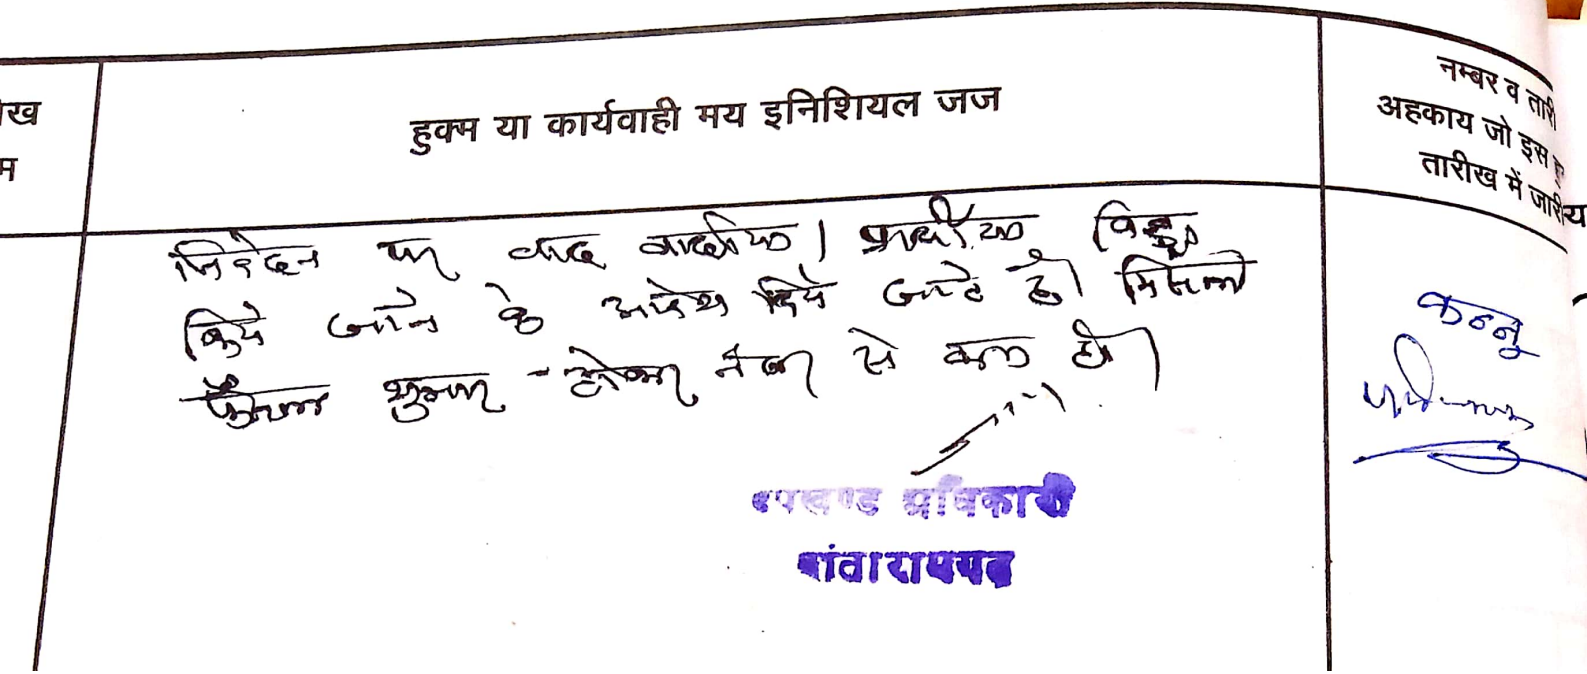 ख
म
हुक्म या कार्यवाही मय इनिशियल जज
नम्बर व तारी
अहकाय जो इस हु
तारीख में जारी
निवेदन पर वाद वादीया। प्रार्थीया विड्रा
किये जाने के आदेश दिये जाते है। मिसल
फैसल शुमार होकर नंबर से कम हो।
कन्नू
उपखण्ड अधिकारी
दांतारामगढ